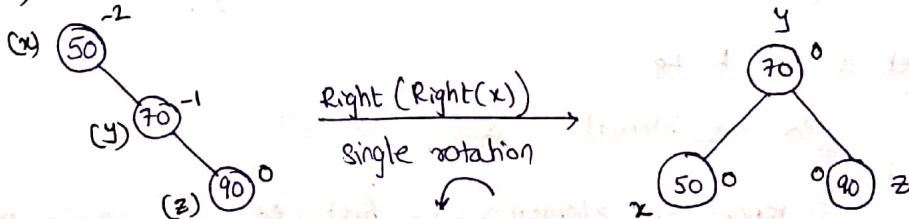 (x) 50 -2
(y) 70 -1
(z) 90 0
Right (Right(x))
Single rotation
y
70 0
x 50 0
0 90 z